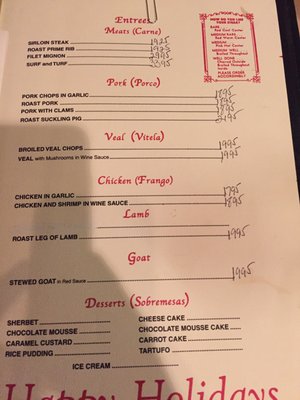 Entrees
Meats (Carne)
SIRLOIN STEAK 1995
ROAST PRIME RIB
FILET MIGNON 2395
SURF and TURF
HOW DO YOU LIKE
YOUR STEAK?
RARE
Red Cool Center
MEDIUM RARE
Red Warm Center
MEDIUM
Pink Hot Center
MEDIUM WELL
Broiled Throughout
WELL DONE
Charred Outside
Broiled Throughout
Inside
PLEASE ORDER
ACCORDINGLY
Pork (Porco)
PORK CHOPS IN GARLIC 1895
ROAST PORK 1895
PORK WITH CLAMS 1895
ROAST SUCKLING PIG 2495
Veal (Vitela)
BROILED VEAL CHOPS 1995
VEAL with Mushrooms in Wine Sauce 1995
Chicken (Frango)
CHICKEN IN GARLIC 1795
CHICKEN AND SHRIMP IN WINE SAUCE 1895
Lamb
ROAST LEG OF LAMB 1995
Goat
STEWED GOAT in Red Sauce 1995
Desserts (Sobremesas)
SHERBET
CHEESE CAKE
CHOCOLATE MOUSSE
CHOCOLATE MOUSSE CAKE
CARAMEL CUSTARD
CARROT CAKE
RICE PUDDING
TARTUFO
ICE CREAM
Happy Holidays